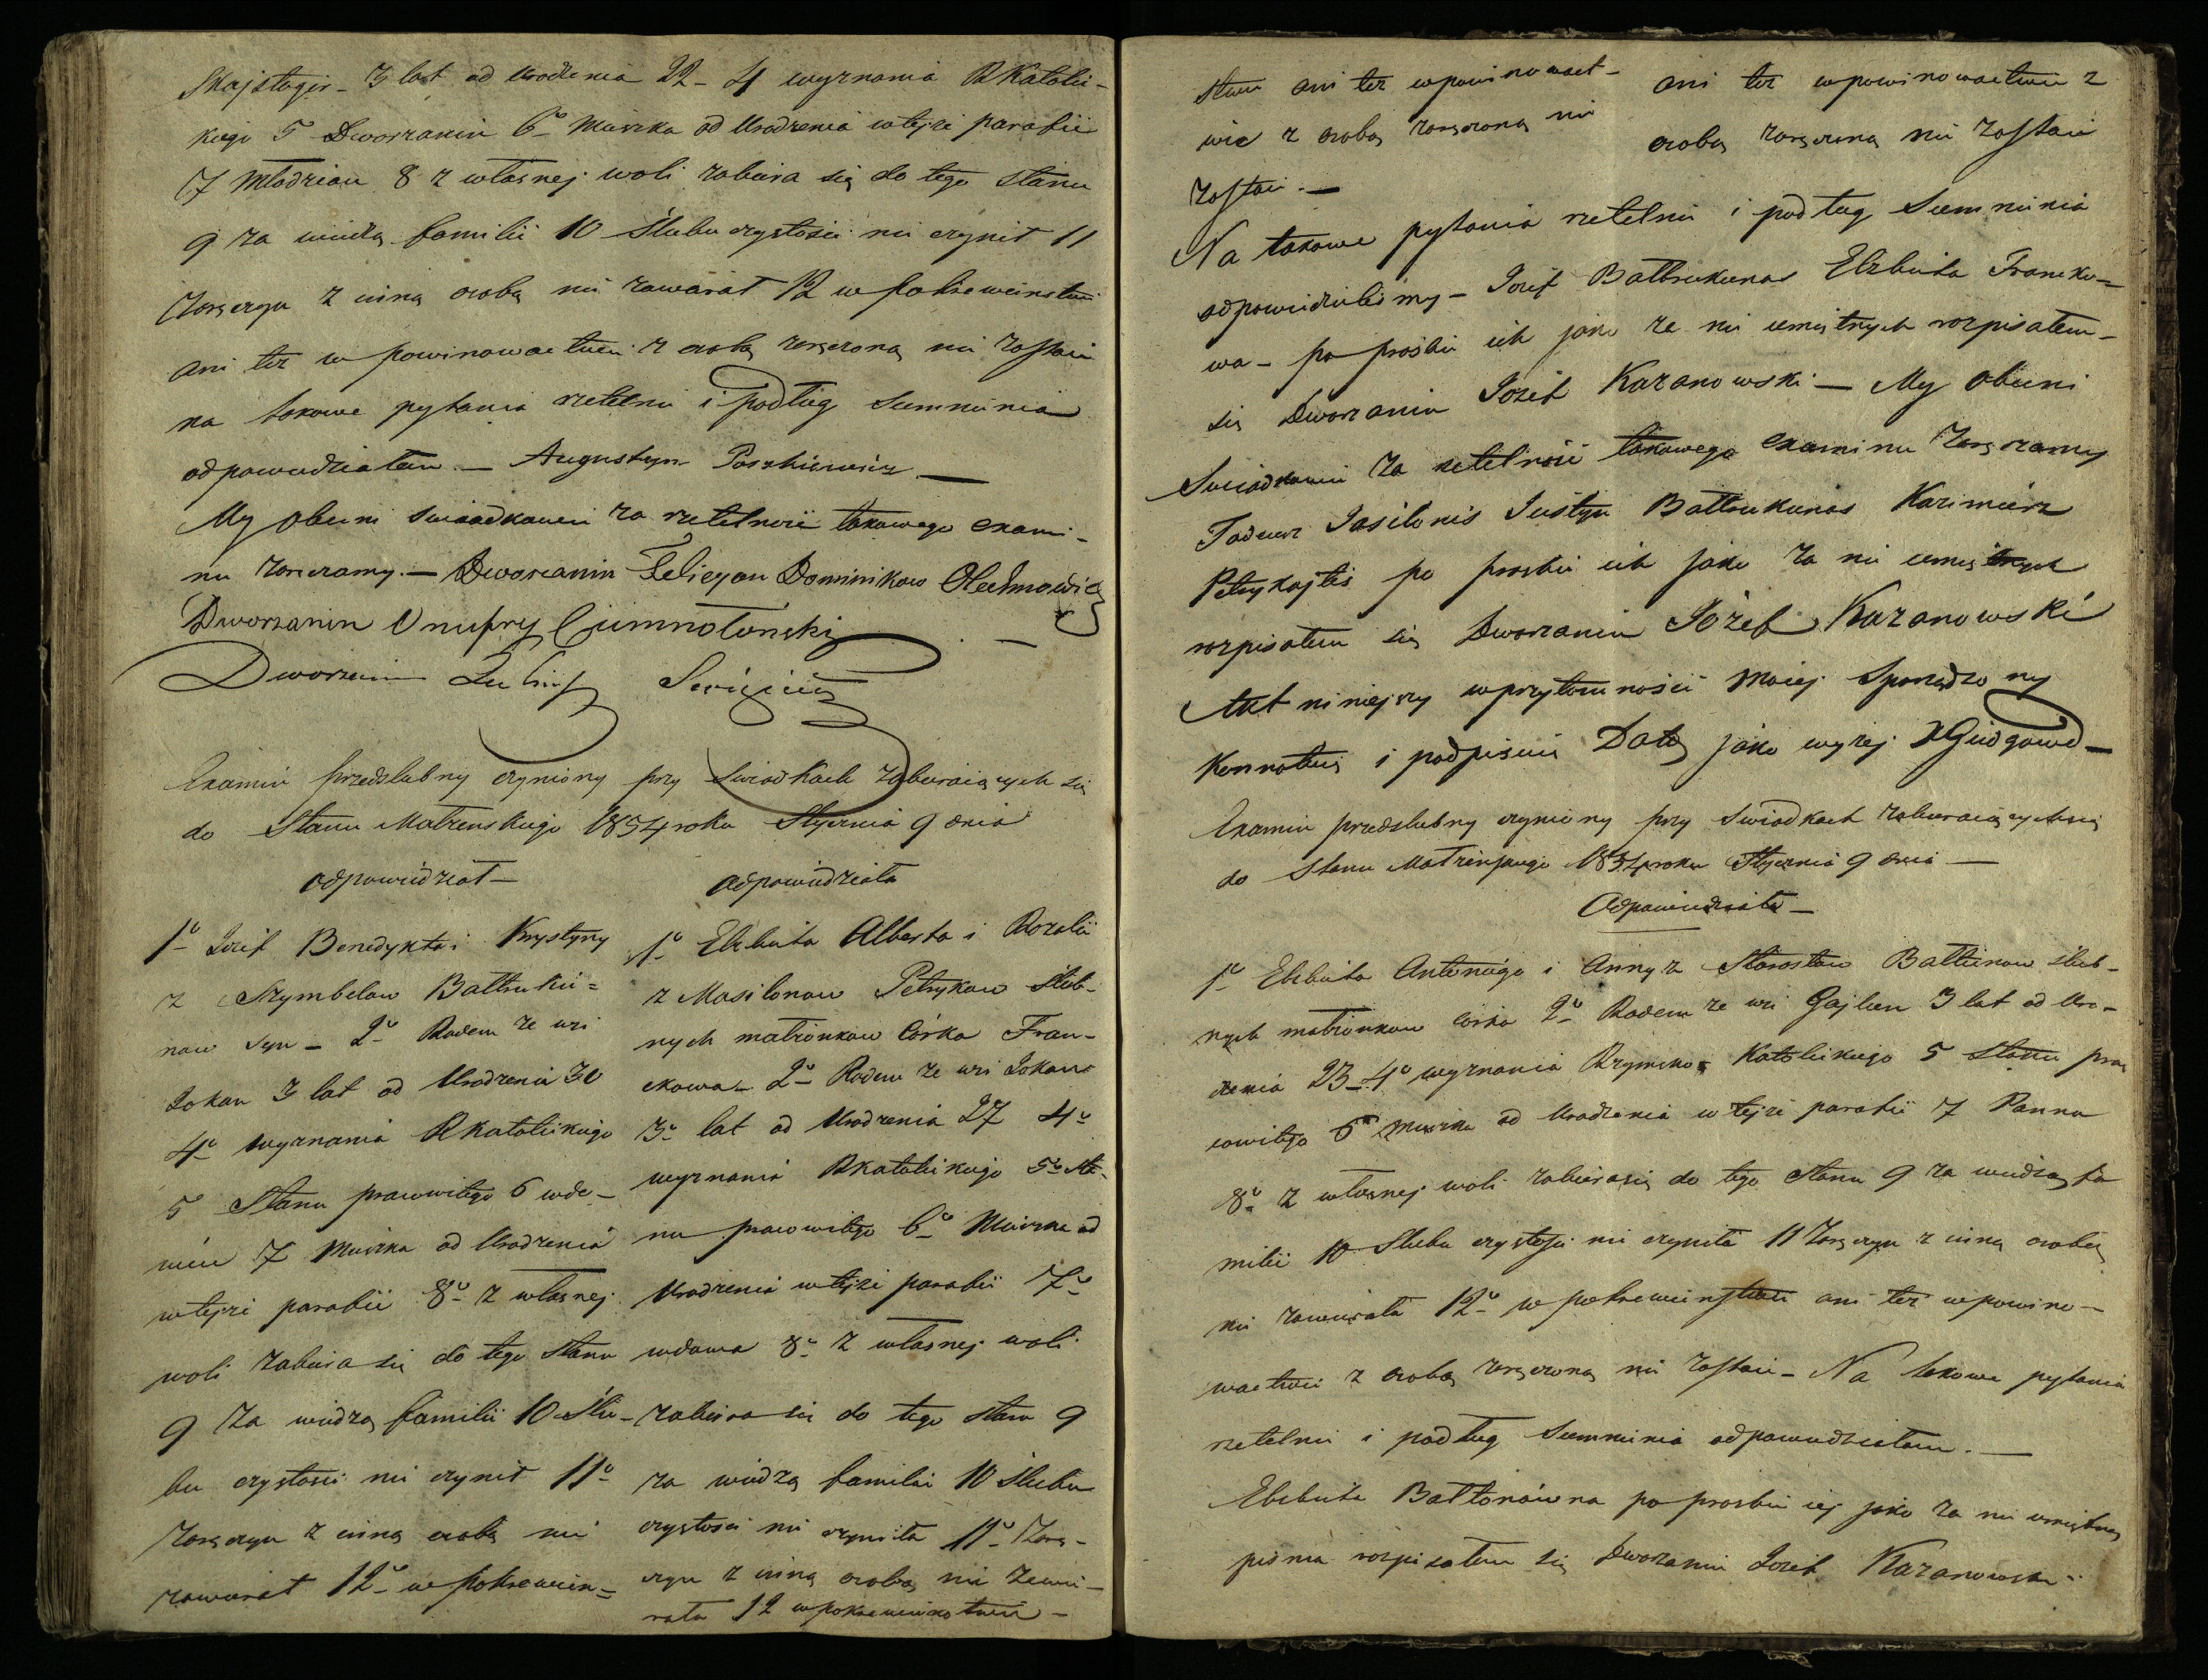 Skajstagir - 3 lat od urodzenia 22 - 4 wyznania RKatolic-
kiego 5 Dworzanin 6º Mieszka od Urodzenia w tejże parafii
7 Młodzian 8 z własnej woli zabiera się do tego stanu
9 za wiedzą familii 10 Ślubu czystości nie czynił 11
Zaręczyn z inną osobą nie zawierał 12 w pokrewieństwie
ani też w powinowactwie z osobą zaręczoną nie zostaie
na takowe pytania rzetelnie i podług Sumnienia
odpowiedziałem. — Augustyn Paszkiewicz —
My obecni swiadkowie za rzetelność takowego exami-
nu zaręczamy. — Dworzanin Felicyan Dominikow Olechnowicz
Dworzanin Onufry
Dworzanin
Examin przedslubny czyniony przy swiadkach zabieraiących się
do Stanu Małżenskiego 1834 roku Stycznia 9 dnia
odpowiedział —
1º Józef Benedykta i Krystyny
z Szymbelow Baltruku=
now syn - 2º Rodem ze wsi
Jokan 3 lat od Urodzenia 30
4º wyznania RKatolickiego
5 Stanu prawowitego 6 wdo-
wiec 7 Mieszka od Urodzenia
w tejże parafii 8º z własnej
woli zabiera się do tego Stanu
9 za wiedzą familii 10 Ślu-
bu czystości nie czynił 11º
Zaręczyn z inną osobą nie
zawierał 12º w pokrewień=
odpowiedziała
1º Elzbieta Alberta i Rozalii
z Masilonow Petrykow ślub-
nych małżonkow Córka Fran-
ckowa - 2º Rodem ze wsi Jokan
3º lat od Urodzenia 27 4º
wyznania RKatolickiego 5º Sta-
nu prawowitego 6º Mieszka od
Urodzenia w tejże parafii 7º
wdowa 8º z własnej woli
zabiera się do tego stanu 9
za wiedzą familii 10 Ślubu
czystości nie czyniła 11º Zarę-
czyn z inną osobą nie zawie-
rała 12 w pokrewieństwie -
stwie ani też w powinowact-
wie z osobą zaręczoną nie
zostaie. —
ani też w powinowactwie z
osobą zaręczoną nie zostaie
Na takowe pytania rzetelnie i podług Sumnienia
odpowiedzielismy - Jozef Baltrukunas Elzbieta Francko=
wa - po prośbie ich jako za nie umiętnych rozpisałem
się Dworzanin Jozef Kazanowski — My obecni
Swiadkowie za rzetelność takowego examinu zaręczamy
Tadeusz Jasilonis Justyn Baltrukunas Kazimierz
Petrykajtis po prosbie ich jako za nie umiętnych
rozpisałem się Dworzanin Józef Kazanowski
Akt niniejszy w przytomności moiej Sporządzony
Konnotuię i podpisuię Datą jako wyżej
Examin przedslubny czyniony przy swiadkach zabieraiących się
do Stanu Małżeńskiego 1834 roku Stycznia 9 dnia —
Odpowiedziała —
1º Elzbieta Antoniego i Anny z Starostow Baltunow ślub-
nych małżonkow córka 2º Rodem ze wsi Gajlun 3 lat od Uro-
dzenia 23 - 4º wyznania Rzymsko Katolickiego 5 Stanu pra
wowitego 6º Mieszka od Urodzenia w tejże parafii 7 Panna
8º z własnej woli zabiera się do tego Stanu 9 za wiedzą fa
milii 10 Slubu czystości nie czyniła 11 Zaręczyn z inną osobą
nie zawierała 12º w pokrewienstwie ani też w powino—
wactwie z osobą zaręczoną nie zostaie - Na takowe pytania
rzetelnie i podług Sumnienia odpowiedziałam. —
Elzbieta Baltonówna po prosbie iej jako za nie umiętną
pisma rozpisałem się Dworzanin Jozef Kazanowski